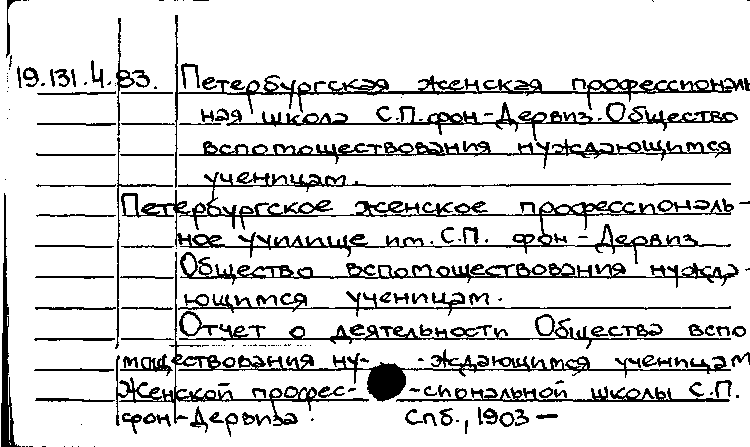 19.131.4.83. Петербургская женская профессиональ
ная школа С.П.фон-Дервиз. Общество
вспомоществования нуждающимся
ученицам.
Петербургское женское профессиональ-
ное училище им. С.П. фон-Дервиз
Общество вспомоществования нужда-
ющимся ученицам.
Отчет о деятельности Общества вспо
моществования ну- -ждающимся ученицам
Женской профес- -сиональной школы С.П.
фон-Дервиза. Спб., 1903 —